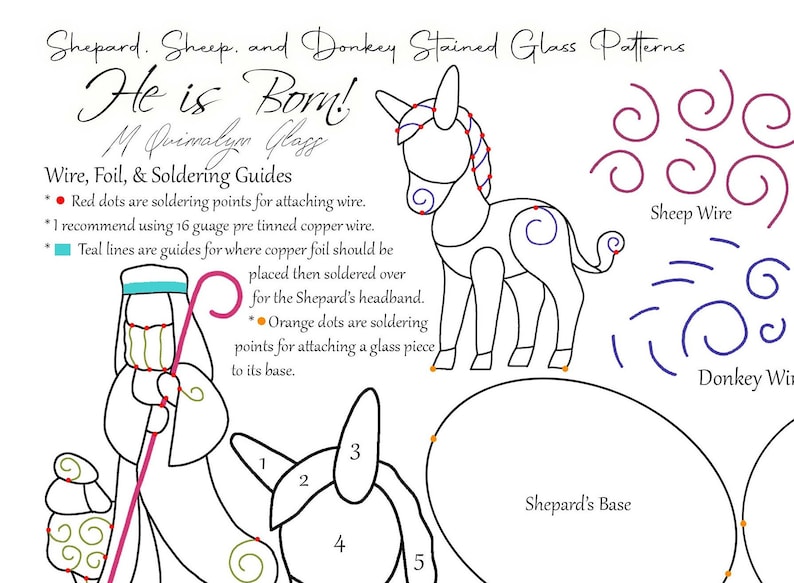 Shepard, Sheep, and Donkey Stained Glass Patterns
He is Born!
M Quinnalynn Glass
Wire, Foil, & Soldering Guides
* Red dots are soldering points for attaching wire.
* I recommend using 16 guage pre tinned copper wire.
* Teal lines are guides for where copper foil should be
placed then soldered over
for the Shepard's headband.
* Orange dots are soldering
points for attaching a glass piece
to its base.
Sheep Wire
Donkey Wir
1
2
3
4
5
Shepard's Base